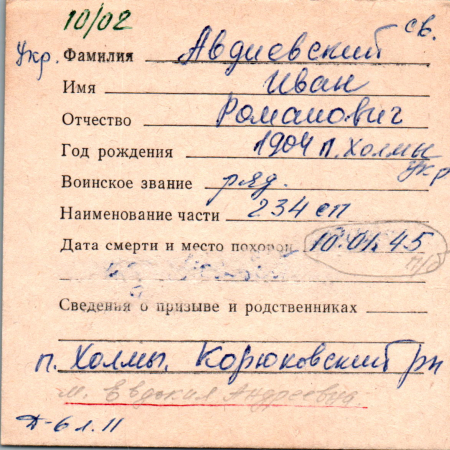 10/02
св.
Укр. Фамилия Авдиевский
Имя Иван
Отчество Романович
Год рождения 1904 п. Холмы
Укр
Воинское звание ряд.
Наименование части 234 сп
Дата смерти и место похорон 10.01.45
п/б
Сведения о призыве и родственниках
п. Холмы, Корюковский рн
м. Евдокия Андреевна
Д-6 л. 11